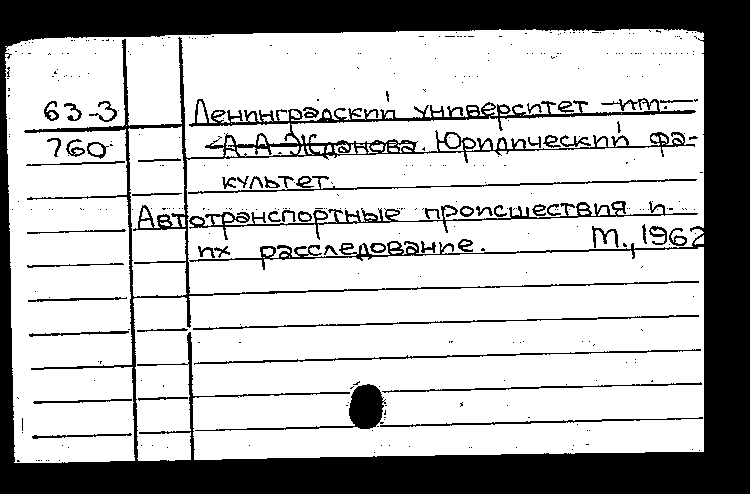 63-3 Ленинградский университет им.
760 А.А.Жданова. Юридический фа-
культет.
Автотранспортные происшествия и
их расследование. М., 1962